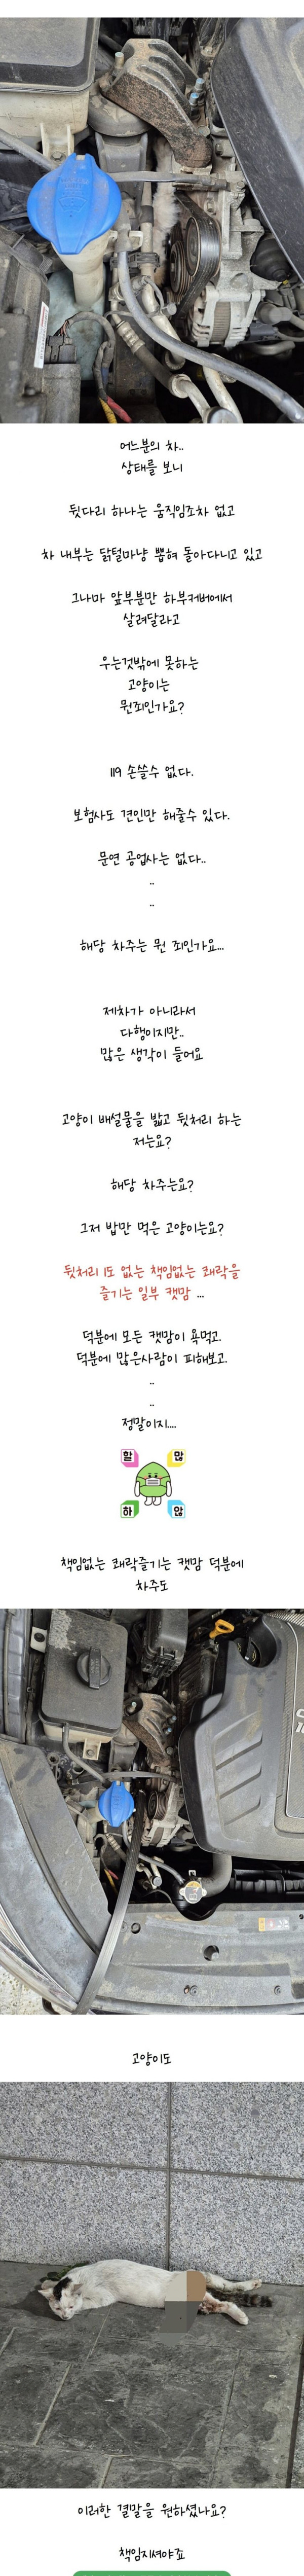 어느분의 차..
상태를 보니
뒷다리 하나는 움직임조차 없고
차 내부는 닭털마냥 뽑혀 돌아다니고 있고
그나마 앞부분만 하부커버에서
살려달라고
우는것밖에 못하는
고양이는
뭔죄인가요?
119 손쓸수 없다.
보험사도 견인만 해줄수 있다.
문연 공업사는 없다..
..
..
해당 차주는 뭔 죄인가요...
제차가 아니라서
다행이지만..
많은 생각이 들어요
고양이 배설물을 밟고 뒷처리 하는
저는요?
해당 차주는요?
그저 밥만 먹은 고양이는요?
뒷처리 1도 없는 책임없는 쾌락을
즐기는 일부 캣맘 ...
덕분에 모든 캣맘이 욕먹고.
덕분에 많은사람이 피해보고.
..
..
정말이지....
할 많
하 않
책임없는 쾌락즐기는 캣맘 덕분에
차주도
고양이도
이러한 결말을 원하셨나요?
책임지셔야죠